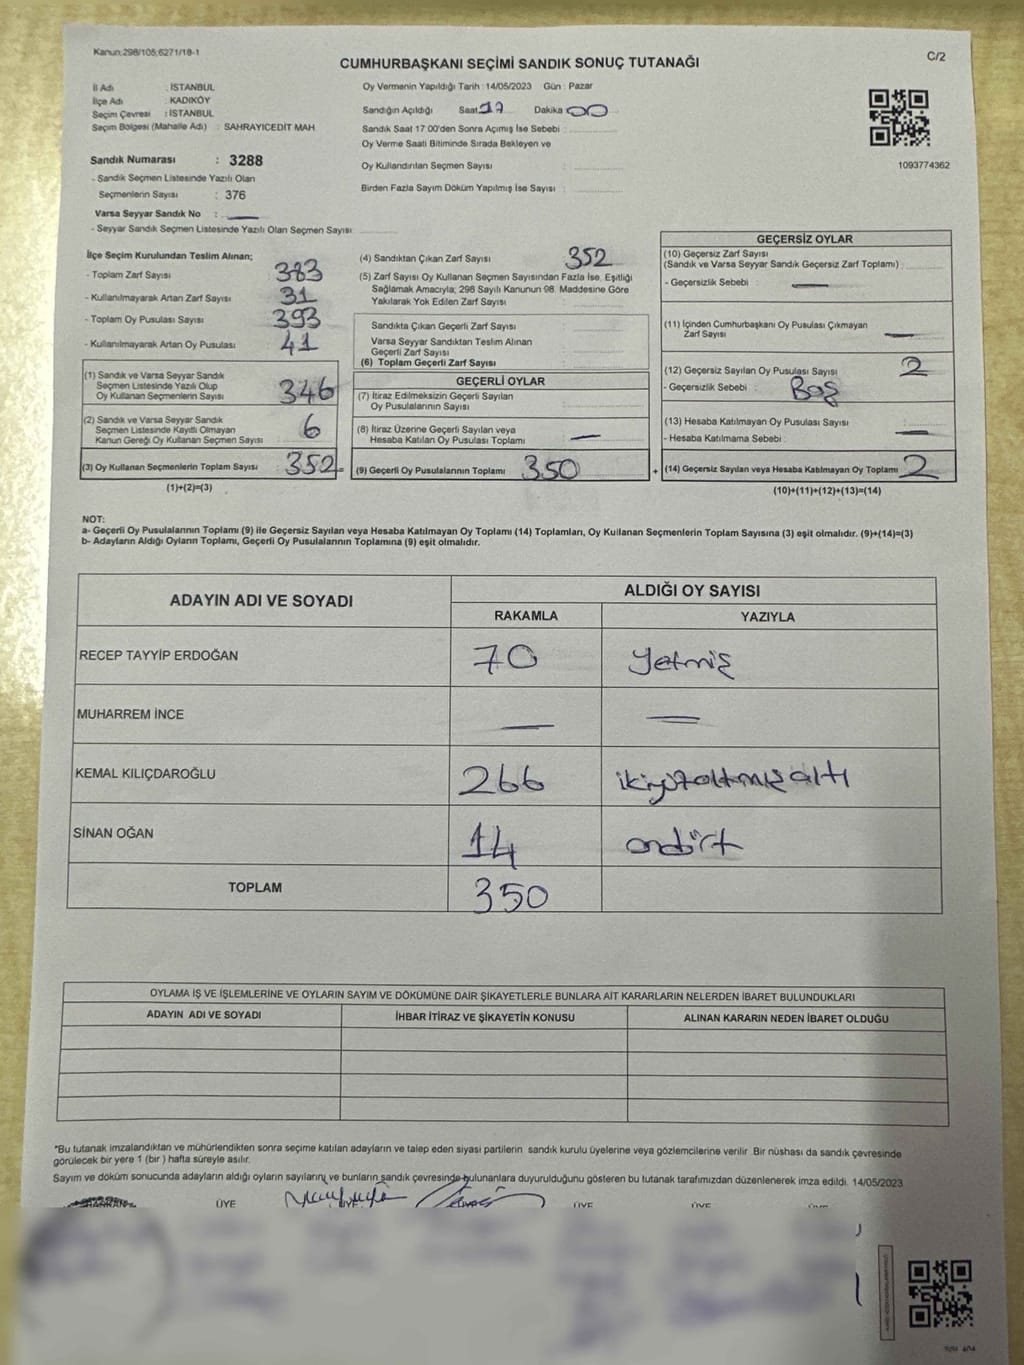 Kanun:298/105;6271/18-1
C/2
CUMHURBAŞKANI SEÇİMİ SANDIK SONUÇ TUTANAĞI
İl Adı : İSTANBUL
İlçe Adı : KADIKÖY
Seçim Çevresi : İSTANBUL
Seçim Bölgesi (Mahalle Adı) : SAHRAYICEDİT MAH.
Sandık Numarası : 3288
- Sandık Seçmen Listesinde Yazılı Olan
Seçmenlerin Sayısı : 376
Varsa Seyyar Sandık No : —
- Seyyar Sandık Seçmen Listesinde Yazılı Olan Seçmen Sayısı
Oy Vermenin Yapıldığı Tarih : 14/05/2023 Gün : Pazar
Sandığın Açıldığı Saat 17 Dakika 00
Sandık Saat 17:00'den Sonra Açımış İse Sebebi :
Oy Verme Saati Bitiminde Sırada Bekleyen ve
Oy Kullandırılan Seçmen Sayısı
Birden Fazla Sayım Döküm Yapılmış İse Sayısı :
1093774362
İlçe Seçim Kurulundan Teslim Alınan;
- Toplam Zarf Sayısı 383
- Kullanılmayarak Artan Zarf Sayısı 31
- Toplam Oy Pusulası Sayısı 393
- Kullanılmayarak Artan Oy Pusulası 41
(1) Sandık ve Varsa Seyyar Sandık
Seçmen Listesinde Yazılı Olup
Oy Kullanan Seçmenlerin Sayısı 346
(2) Sandık ve Varsa Seyyar Sandık
Seçmen Listesinde Kayıtlı Olmayan
Kanun Gereği Oy Kullanan Seçmen Sayısı 6
(3) Oy Kullanan Seçmenlerin Toplam Sayısı : 352 =
(1)+(2)=(3)
(4) Sandıktan Çıkan Zarf Sayısı 352
(5) Zarf Sayısı Oy Kullanan Seçmen Sayısından Fazla İse, Eşitliği
Sağlamak Amacıyla; 298 Sayılı Kanunun 98. Maddesine Göre
Yakılarak Yok Edilen Zarf Sayısı
Sandıkta Çıkan Geçerli Zarf Sayısı
Varsa Seyyar Sandıktan Teslim Alınan
Geçerli Zarf Sayısı
(6) Toplam Geçerli Zarf Sayısı
GEÇERLİ OYLAR
(7) İtiraz Edilmeksizin Geçerli Sayılan
Oy Pusulalarının Sayısı
(8) İtiraz Üzerine Geçerli Sayılan veya
Hesaba Katılan Oy Pusulası Toplamı —
(9) Geçerli Oy Pusulalarının Toplamı 350 +
GEÇERSİZ OYLAR
(10) Geçersiz Zarf Sayısı
(Sandık ve Varsa Seyyar Sandık Geçersiz Zarf Toplamı) :
- Geçersizlik Sebebi : —
(11) İçinden Cumhurbaşkanı Oy Pusulası Çıkmayan
Zarf Sayısı —
(12) Geçersiz Sayılan Oy Pusulası Sayısı 2
- Geçersizlik Sebebi : Boş
(13) Hesaba Katılmayan Oy Pusulası Sayısı :
- Hesaba Katılmama Sebebi : —
(14) Geçersiz Sayılan veya Hesaba Katılmayan Oy Toplamı 2
(10)+(11)+(12)+(13)=(14)
NOT:
a- Geçerli Oy Pusulalarının Toplamı (9) ile Geçersiz Sayılan veya Hesaba Katılmayan Oy Toplamı (14) Toplamları, Oy Kullanan Seçmenlerin Toplam Sayısına (3) eşit olmalıdır. (9)+(14)=(3)
b- Adayların Aldığı Oyların Toplamı, Geçerli Oy Pusulalarının Toplamına (9) eşit olmalıdır.
ADAYIN ADI VE SOYADI
ALDIĞI OY SAYISI
RAKAMLA YAZIYLA
RECEP TAYYİP ERDOĞAN 70 Yetmiş
MUHARREM İNCE — —
KEMAL KILIÇDAROĞLU 266 ikiyüzaltmışaltı
SİNAN OĞAN 14 ondört
TOPLAM 350
OYLAMA İŞ VE İŞLEMLERİNE VE OYLARIN SAYIM VE DÖKÜMÜNE DAİR ŞİKAYETLERLE BUNLARA AİT KARARLARIN NELERDEN İBARET BULUNDUKLARI
ADAYIN ADI VE SOYADI İHBAR İTİRAZ VE ŞİKAYETİN KONUSU ALINAN KARARIN NEDEN İBARET OLDUĞU
*Bu tutanak imzalandıktan ve mühürlendikten sonra seçime katılan adayların ve talep eden siyasi partilerin sandık kurulu üyelerine veya gözlemcilerine verilir. Bir nüshası da sandık çevresinde
görülecek bir yere 1 (bir ) hafta süreyle asılır.
Sayım ve döküm sonucunda adayların aldığı oyların sayılarını ve bunların sandık çevresinde bulunanlara duyurulduğunu gösteren bu tutanak tarafımızdan düzenlenerek imza edildi. 14/05/2023
BAŞKAN ÜYE ÜYE ÜYE ÜYE ÜYE